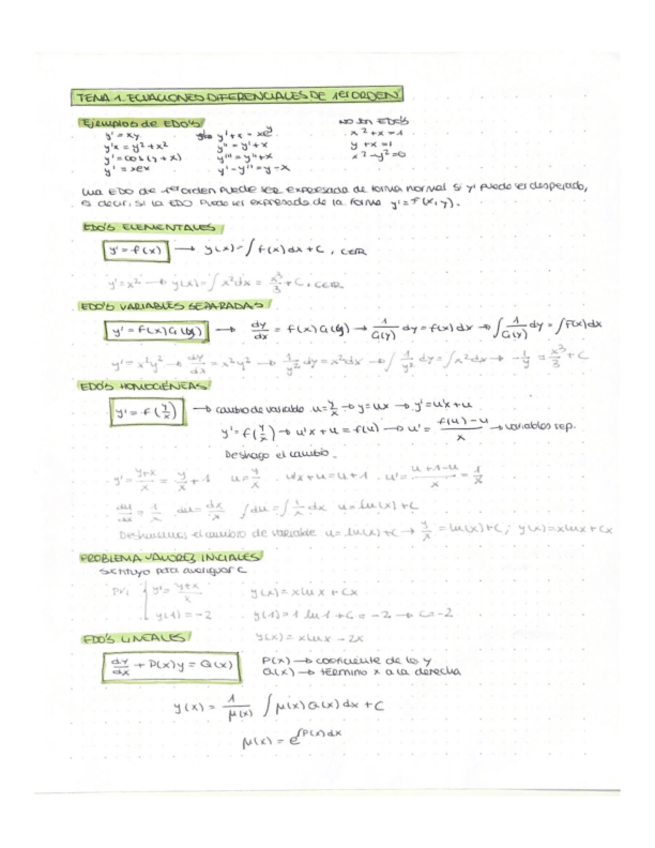 TEMA 1. ECUACIONES DIFERENCIALES DE 1er ORDEN
Ejemplos de EDO'S NO son EDO'S
y' = xy y' + x = xe^y x² + x = 1
y'x = y² + x² y'' = y' + x y + x = 1
y' = cos(y + x) y''' = y'' + x x² - y² = 0
y' = xex y' - y'' = y - x
Una EDO de 1er orden puede ser expresada de forma normal si y' puede ser despejado,
es decir, si la EDO puede ser expresada de la forma y' = f(x, y).
EDO'S ELEMENTALES
y' = f(x) → y(x) = ∫ f(x) dx + C, C∈R
y' = x² → y(x) = ∫ x² dx = x³/3 + C, C∈R
EDO'S VARIABLES SEPARADAS
y' = f(x) G(y) → dy/dx = f(x) G(y) → 1/G(y) dy = f(x) dx → ∫ 1/G(y) dy = ∫ F(x) dx
y' = x² y² → dy/dx = x² y² → 1/y² dy = x² dx → ∫ 1/y² dy = ∫ x² dx → -1/y = x³/3 + C
EDO'S HOMOGÉNEAS
y' = f(y/x) → cambio de variable u = y/x → y = ux → y' = u'x + u
y' = f(y/x) → u'x + u = f(u) → u' = f(u) - u / x → variables sep.
Deshago el cambio.
y' = y+x / x = y/x + 1 u = y/x . u'x + u = u + 1 . u' = u + 1 - u / x = 1/x
du/dx = 1/x du = dx/x ∫ du = ∫ 1/x dx u = ln(x) + C
Deshacemos el cambio de variable u = ln(x) + C → y/x = ln(x) + C ; y(x) = x ln x + Cx
PROBLEMA VALORES INICIALES
sustituyo para averiguar C
PVI { y' = y+x / x y(x) = x ln x + Cx
y(1) = -2 y(1) = 1 ln 1 + C = -2 → C = -2
EDO'S LINEALES y(x) = x ln x - 2x
dy/dx + P(x) y = Q(x) P(x) → coeficiente de la y
Q(x) → término x a la derecha
y(x) = 1/μ(x) ∫ μ(x) Q(x) dx + C
μ(x) = e^∫P(x) dx